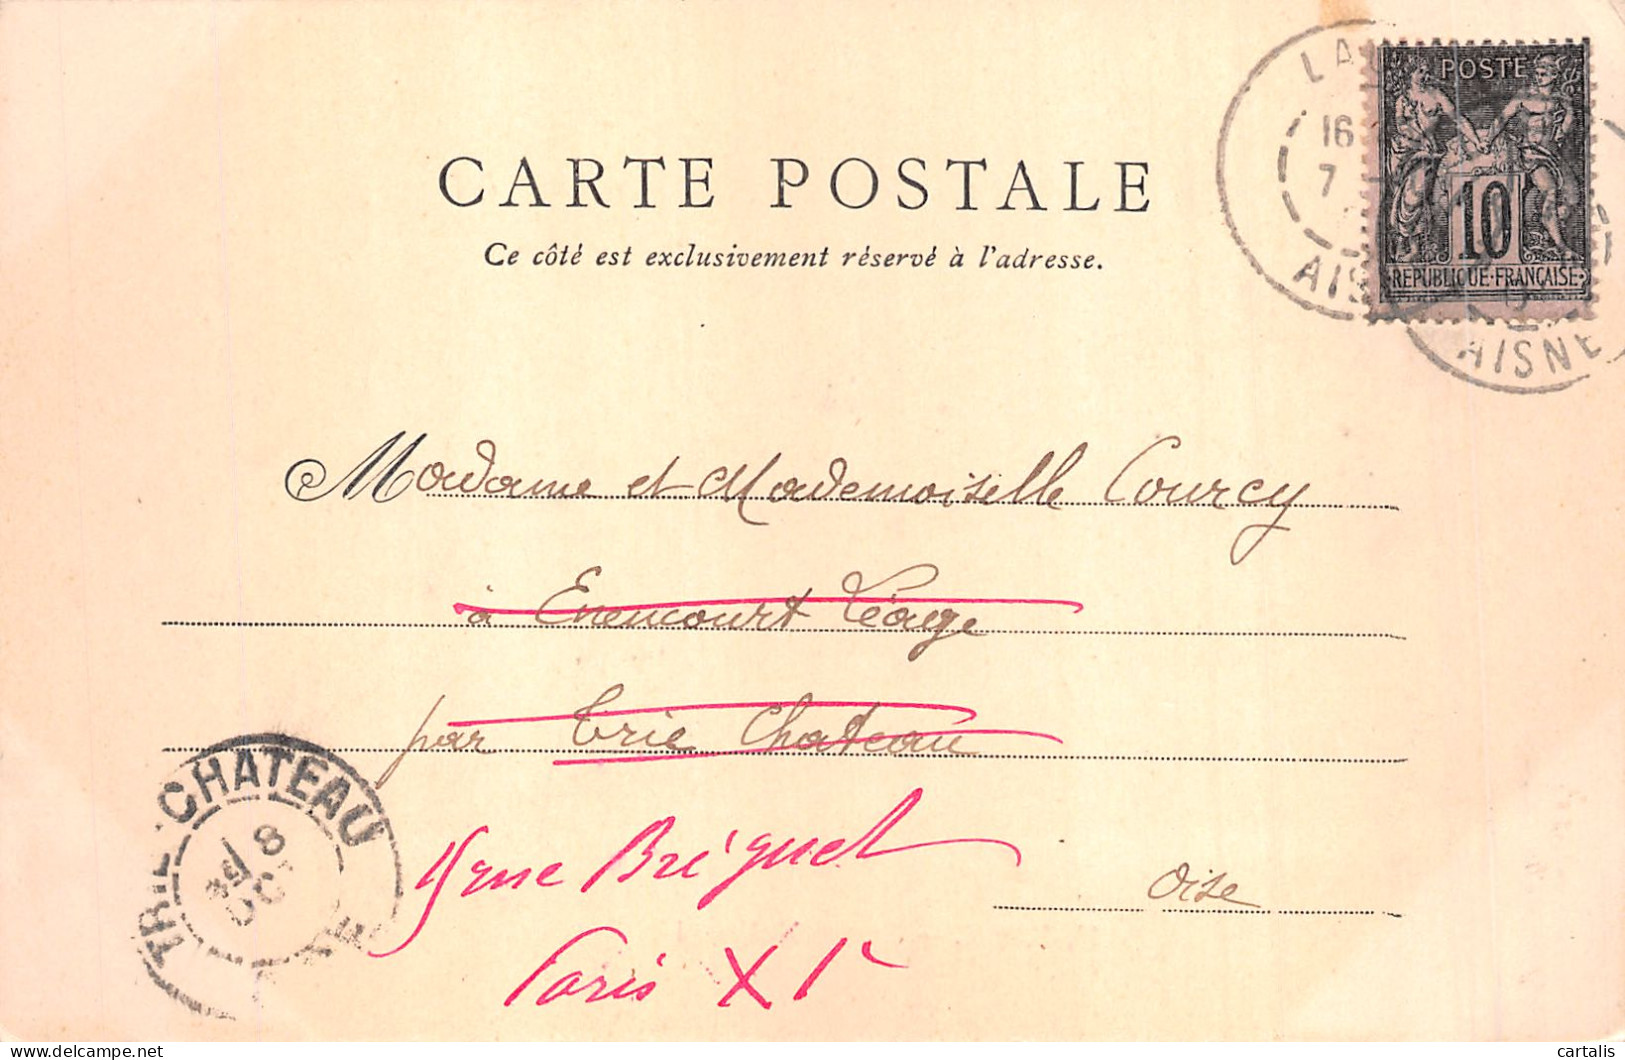 CARTE POSTALE
Ce côté est exclusivement réservé à l'adresse.
POSTE
10
REPUBLIQUE·FRANÇAISE
16
7
AIS
AISNE
Madame et Mademoiselle Courcy
à Enencourt Léage
par Trie Chateau
Oise
rue Bréguet
Paris XIe
TRIE-CHATEAU
8
OCT
delcampe.net
cartalis